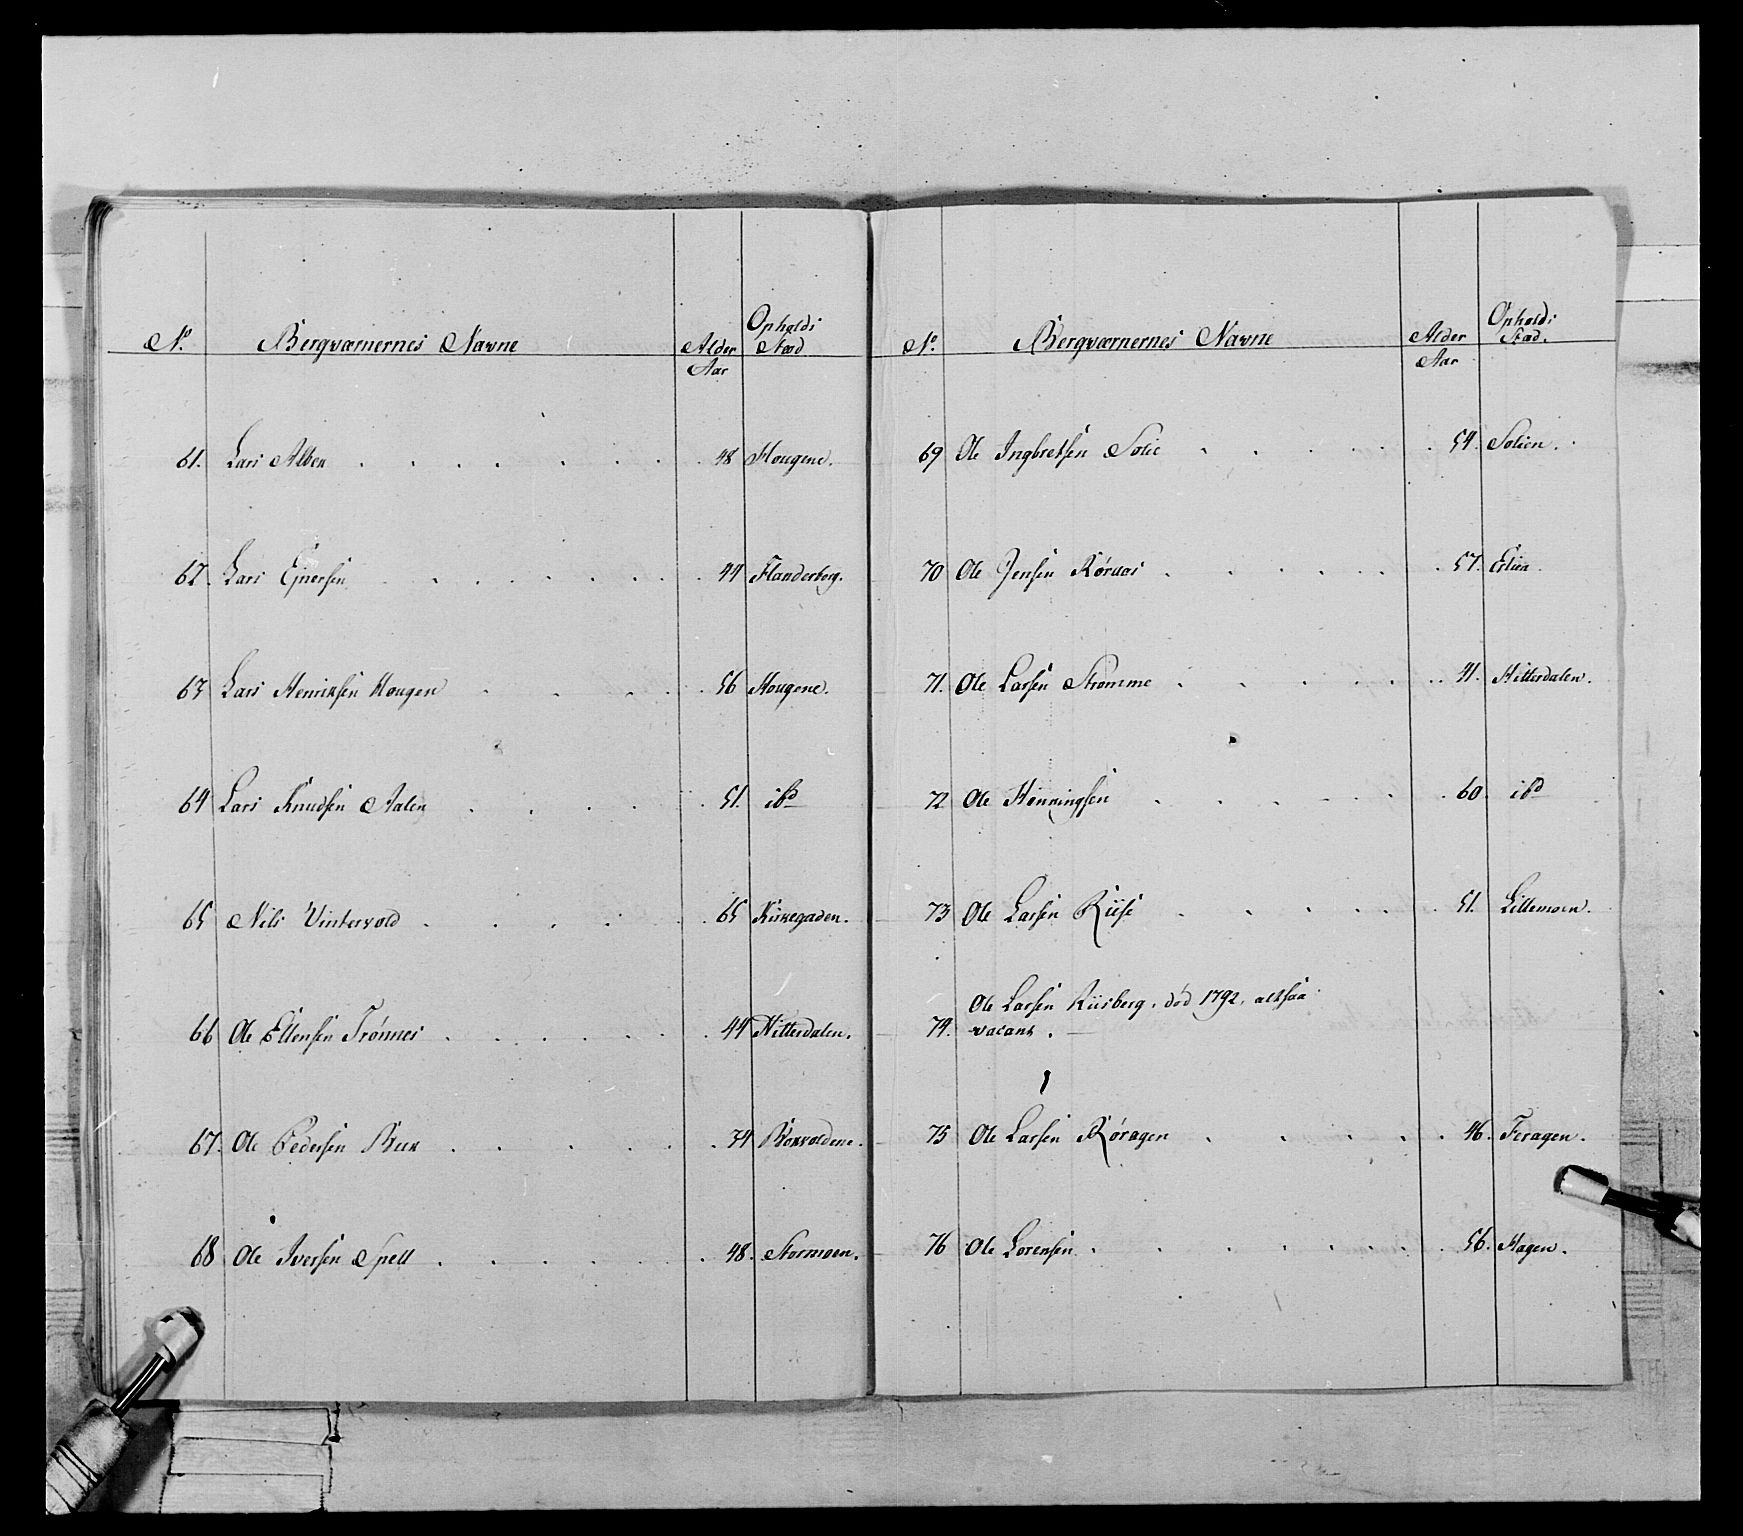 No. Bergværnernes Navne Alder Aar Opholds Stæd
61. Lars Alben 48 Hougene.
62. Lars Ejnersen 44 Flanderborg.
63 Lars Henriksen Hougen 56 Hougene.
64 Lars Knudsen Aalen 51. ibd
65 Nils Vintervold 65 Kirkegaden.
66 Ole Ellensen Trønnes 44 Hitterdalen.
67. Ole Pedersen Buk 34
68 Ole Iversen Spell 48. Stormoen.
No. Bergværnernes Navne Alder Aar Opholds Stæd.
69 Ole Ingbretsen Solie 54. Solien.
70 Ole Jensen Røraas 57.
71. Ole Larsen Strømme 41. Hitterdalen.
72 Ole Henningsen 60. ibd
73 Ole Larsen Riise 51. Lillemoen.
Ole Larsen Riisberg. død 1792, altsaa
74. vacant.
75 Ole Larsen Røragen 46. Feragen.
76 Ole Lorensen 56. Hagen.